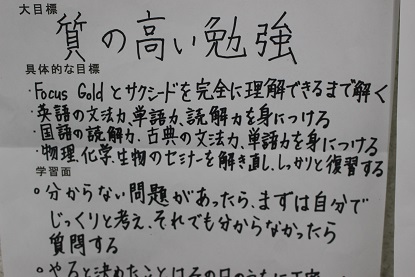 大目標
質の高い勉強
具体的な目標
・Focus Gold とサクシードを完全に理解できるまで解く
・英語の文法力、単語力、読解力を身につける
・国語の読解力、古典の文法力、単語力を身につける
・物理、化学、生物のセミナーを解き直し、しっかりと復習する
学習面
○分からない問題があったら、まずは自分で
じっくりと考え、それでも分からなかったら
質問する
○やると決めたことはその日のうちに